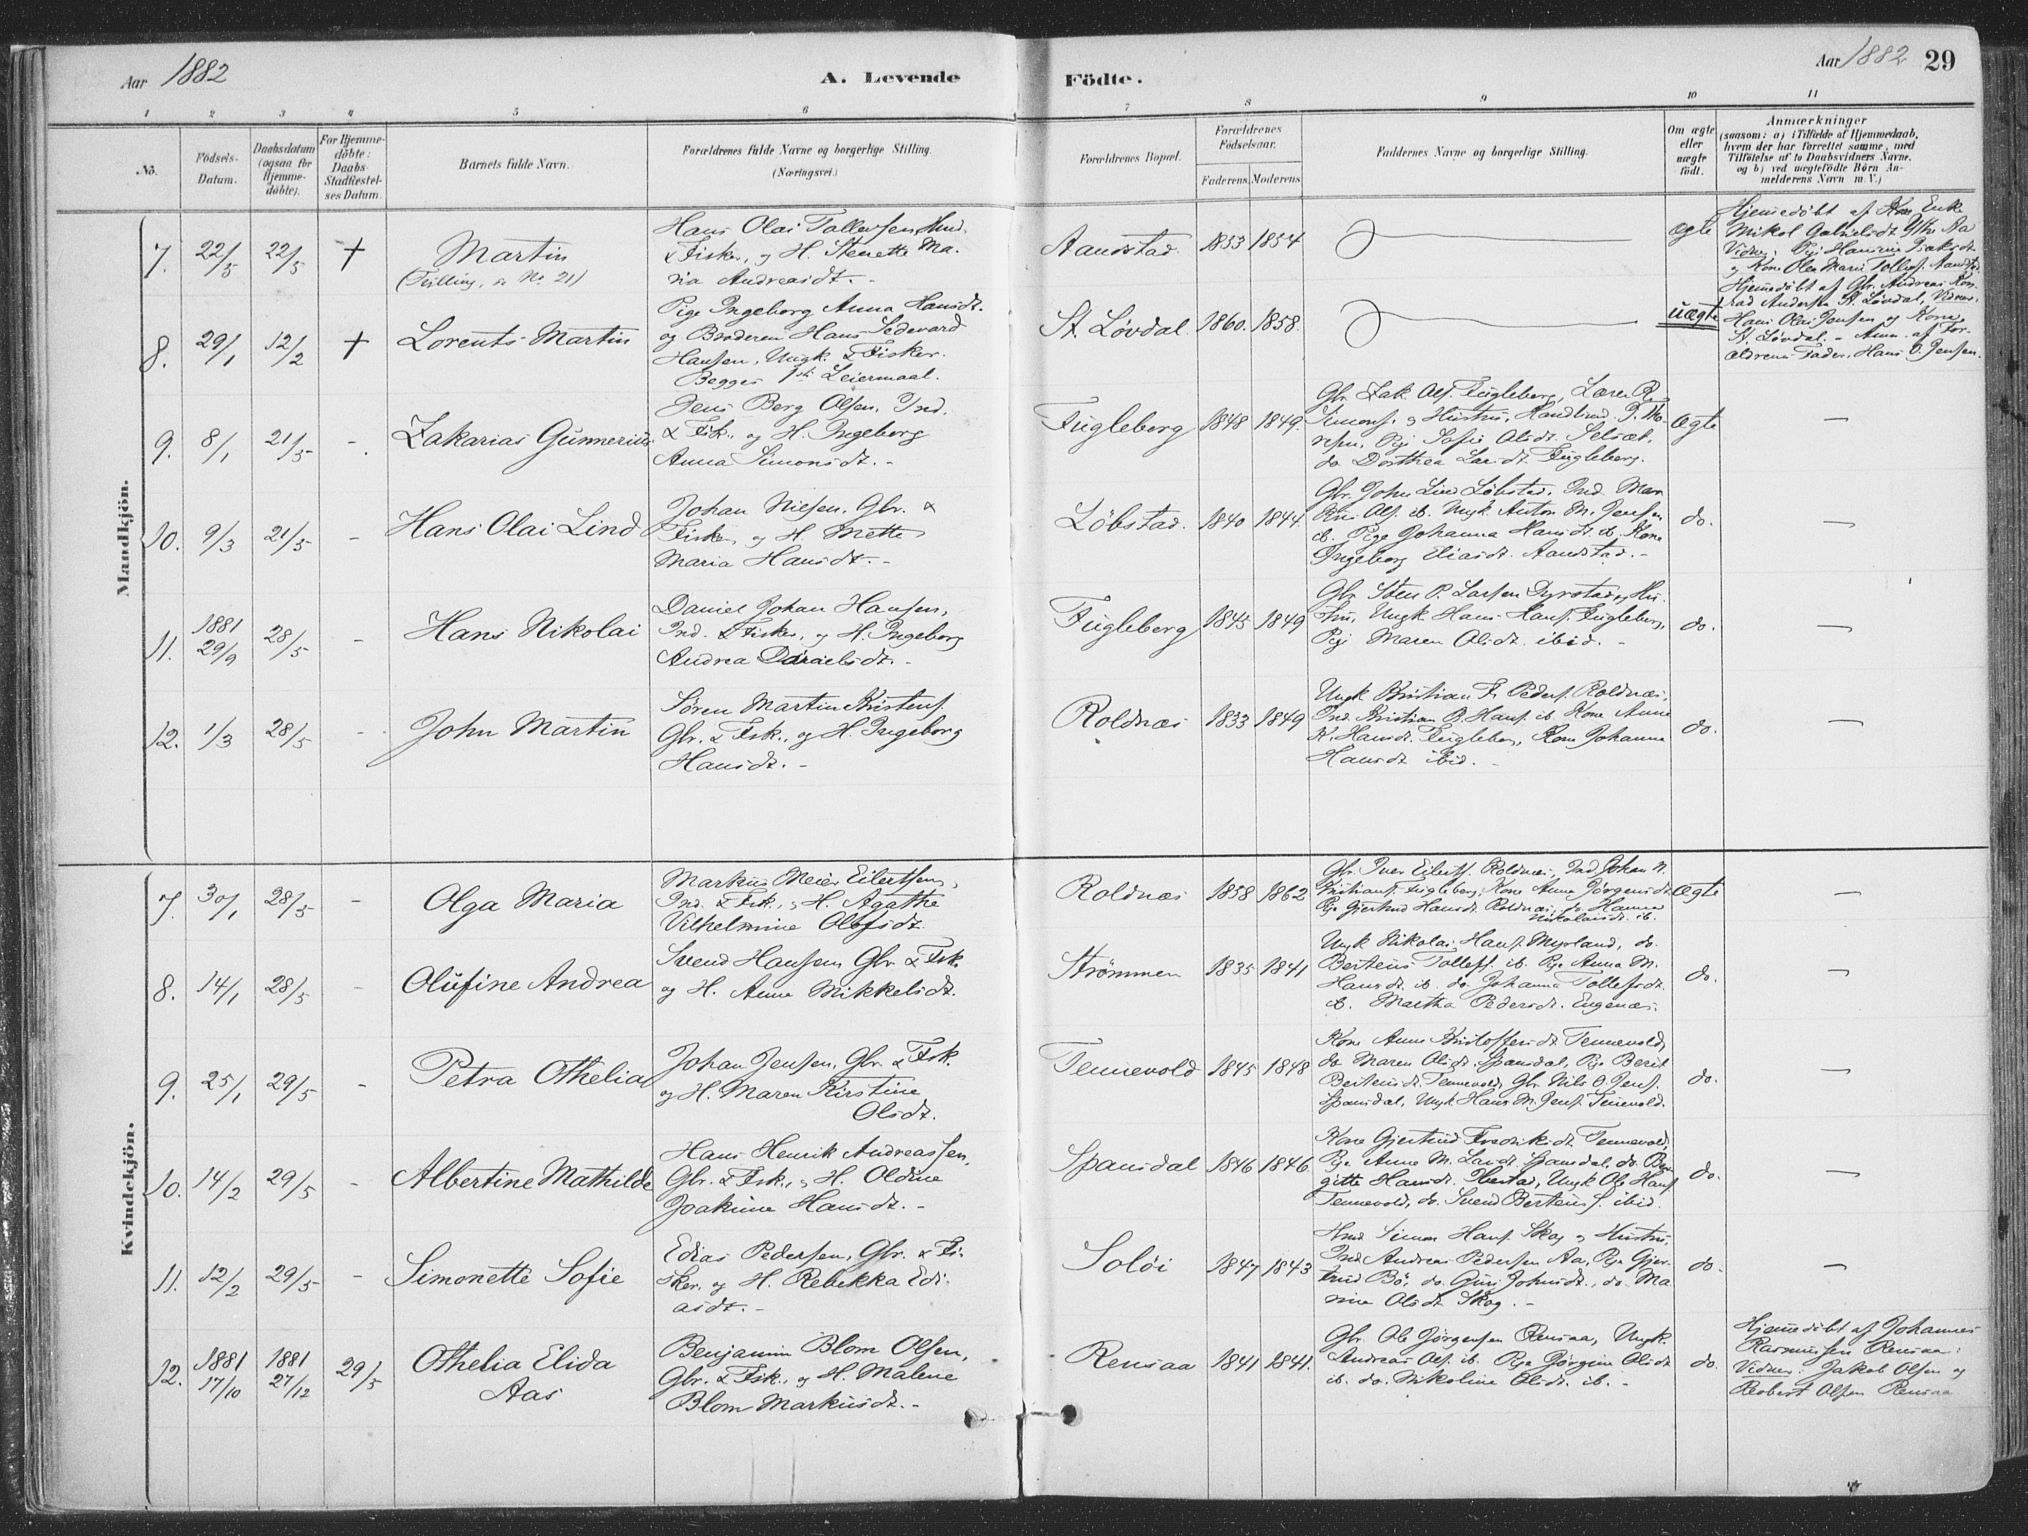 Aar 1882
A. Levende
Födte.
Aar 1882
29
1 2 3 4 5 6 7 8 9 10 11
No.
Födsels-
Datum.
Daabsdatum
(ogsaa for
Hjemme-
døbte).
For Hjemme-
døbte:
Daabs-
Stadfæstel-
ses Datum.
Barnets fulde Navn.
Forældrenes fulde Navne og borgerlige Stilling.
(Næringsvei.)
Forældrenes Bopæl.
Forældrenes
Födselsaar.
Faderens. Moderens.
Faddernes Navne og borgerlige Stilling.
Om ægte
eller
uægte
født.
Anmærkninger
(saasom: a) i Tilfælde af Hjemmedaab,
hvem der har forrettet samme, med
Tilföielse af to Daabsvidners Navne.
og b) ved uægtefödte Börn An-
melderens Navn m. V.)
Mandkjön.
7. 22/5 22/5 +
Martin
(Tvilling, No. 21)
Hans Olai Tollefsen, Ind.
& Fisker, og H. Stenette Ma-
ria Andreasdt. -
Aandstad. 1853 1854
ægte
Hjemmedøbt af Enke
Mikol Gabrielsdt
Vidner: Pige
og Kone Olea Marie Tollefs. Aandstad.
8. 29/1 12/2 +
Lorents Martin
Pige Ingeborg Anna Hansdt.
og Broderen Hans Sedevard
Hansen, Ungk. & Fisker.
Begges 1ste Leiermaal.
St. Løvdal. 1860. 1858.
uægte
Hjemmedøbt af Gbr. Andreas Kon-
rad Andersen St. Løvdal, Vidner,
Hans Olai Jensen og Kone,
St. Løvdal. - Anm. af For-
ældrenes Fader, Hans O. Jensen.
9. 8/1 21/5 -
Zakarias Gunnerius
Jens Berg Olsen, Ind.
& Fisk., og H. Ingeborg
Anna Simonsdt. -
Fugleberg 1848 1849.
Gbr. Isak Ols. Fugleberg, Lærer R.
Simons. og Hustru, Handlend.
Pige Sofie Olsdt. Selsæt,
do Dorthea Larsdt. Fugleberg.
Ægte
—
10. 9/3 21/5 -
Hans Olai Lind
Johan Nilsen, Gbr. &
Fisker, og H. Mette
Maria Hansdt. -
Löbstad. 1840 1844.
Gbr. John Lind Löbstad, Ind. Mar-
Ols. ib. Ungk. Anton M. Jensen
ib. Pige Johanna Hansdt. ib. Kone
Ingeborg Eliasdt. Aandstad. -
do.
—
11. 1881 29/9 28/5 -
Hans Nikolai
Daniel Johan Hansen,
Ind. & Fisker, og H. Ingeborg
Andrea Danielsdt. -
Fugleberg 1845 1849
Gbr. Sten P. Larsen Dyrstad og Hu-
stru, Ungk. Hans Hans. Fugleberg,
Pige Maren Olsdt. ibid. -
do.
—
12. 1/3 28/5 -
John Martin
Søren Martin Kristens.
Gbr. & Fisk., og H. Ingeborg
Hansdt. -
Roldnæs 1833 1849
Ungk. Kristian F. Peders. Roldnæs,
Ind. Kristian B. Hans. ib. Kone Anne
K. Hansdt. Fugleberg, Kone Johanna
Hansdt. ibid. -
do.
—
Kvindekjön.
7. 30/1 28/5 -
Olga Maria
Markus Meier Eilertsen,
Ind. & Fisk., og H. Agathe
Vilhelmine Olofsdt.
Roldnæs 1858 1862
Gbr. Iver Eilerts. Roldnæs, Ind. Johan N.
Kristians. Fugleberg, Kone Anne Jörgensdt.
Pige Gjertrud Hansdt. Roldnæs, do. Hanna
Nikolaisdt. ib.
Ægte
—
8. 14/1 28/5 -
Olufine Andrea
Svend Hansen, Gbr. & Fisk.
og H. Anne Mikkelsdt.
Strømmen 1835 1841
Ungk. Nikolai Hans. Myrland, do.
Berteus Tollefs. ib. Pige Anna M.
Hansdt. ib. do. Johanna Tollefsdt.
ib. Martha Pedersdt. Engenæs.
do.
—
9. 25/1 29/5 -
Petra Othelia
Johan Jensen, Gbr. & Fisk.
og H. Maren Kirstine
Olsdt.
Tennevold 1845 1848
Kone Anne Kristoffersdt. Tennevold,
do Maren Olsdt. Spansdal, Pige Berit
Berteusdt. Tennevold, Gbr. Nils O. Jens.
Spansdal, Ungk. Hans M. Jens. Tennevold.
do.
—
10. 14/2 29/5 -
Albertine Mathilde
Hans Henrik Andreassen,
Gbr. & Fisk., og H. Oldine
Joakime Hansdt. -
Spansdal 1846 1846
Kone Gjertrud Fredriksdt. Tennevold,
Pige Anne M. Larsdt. Spansdal, do. Ber-
gitte Hansdt. Ibestad, Ungk. Ole Hans.
Tennevold, do. Svend Berteus S. ibid.
do.
—
11. 12/2 29/5 -
Simonette Sofie
Edias Pedersen, Gbr. & Fi-
sker, og H. Rebekka Edi-
asdt. -
Soløi 1847 1843
Ind. Simon Hans. Skog og Hustru,
Ind. Andreas Pedersen Aa, Pige Gjer-
trud Bö, do. Guri Johnsdt., do. Ma-
rine Olsdt. Skog. -
do.
—
12. 1881 17/10 1881 27/12 29/5
Othelia Elida
Aas
Benjamin Blom Olsen,
Gbr. & Fisk., og H. Malene
Blom Markusdt. -
Rensaa 1841 1841.
Gbr. Ole Jörgensen Rensaa, Ungk.
Andreas Ols. ib. Pige Jörgine Olsdt.
ib. do. Nikoline Olsdt. ib. -
do.
Hjemmedøbt af Johannes
Rasmussen Rensaa:
Vidner: Jakob Olsen og
Robert Olsen Rensaa